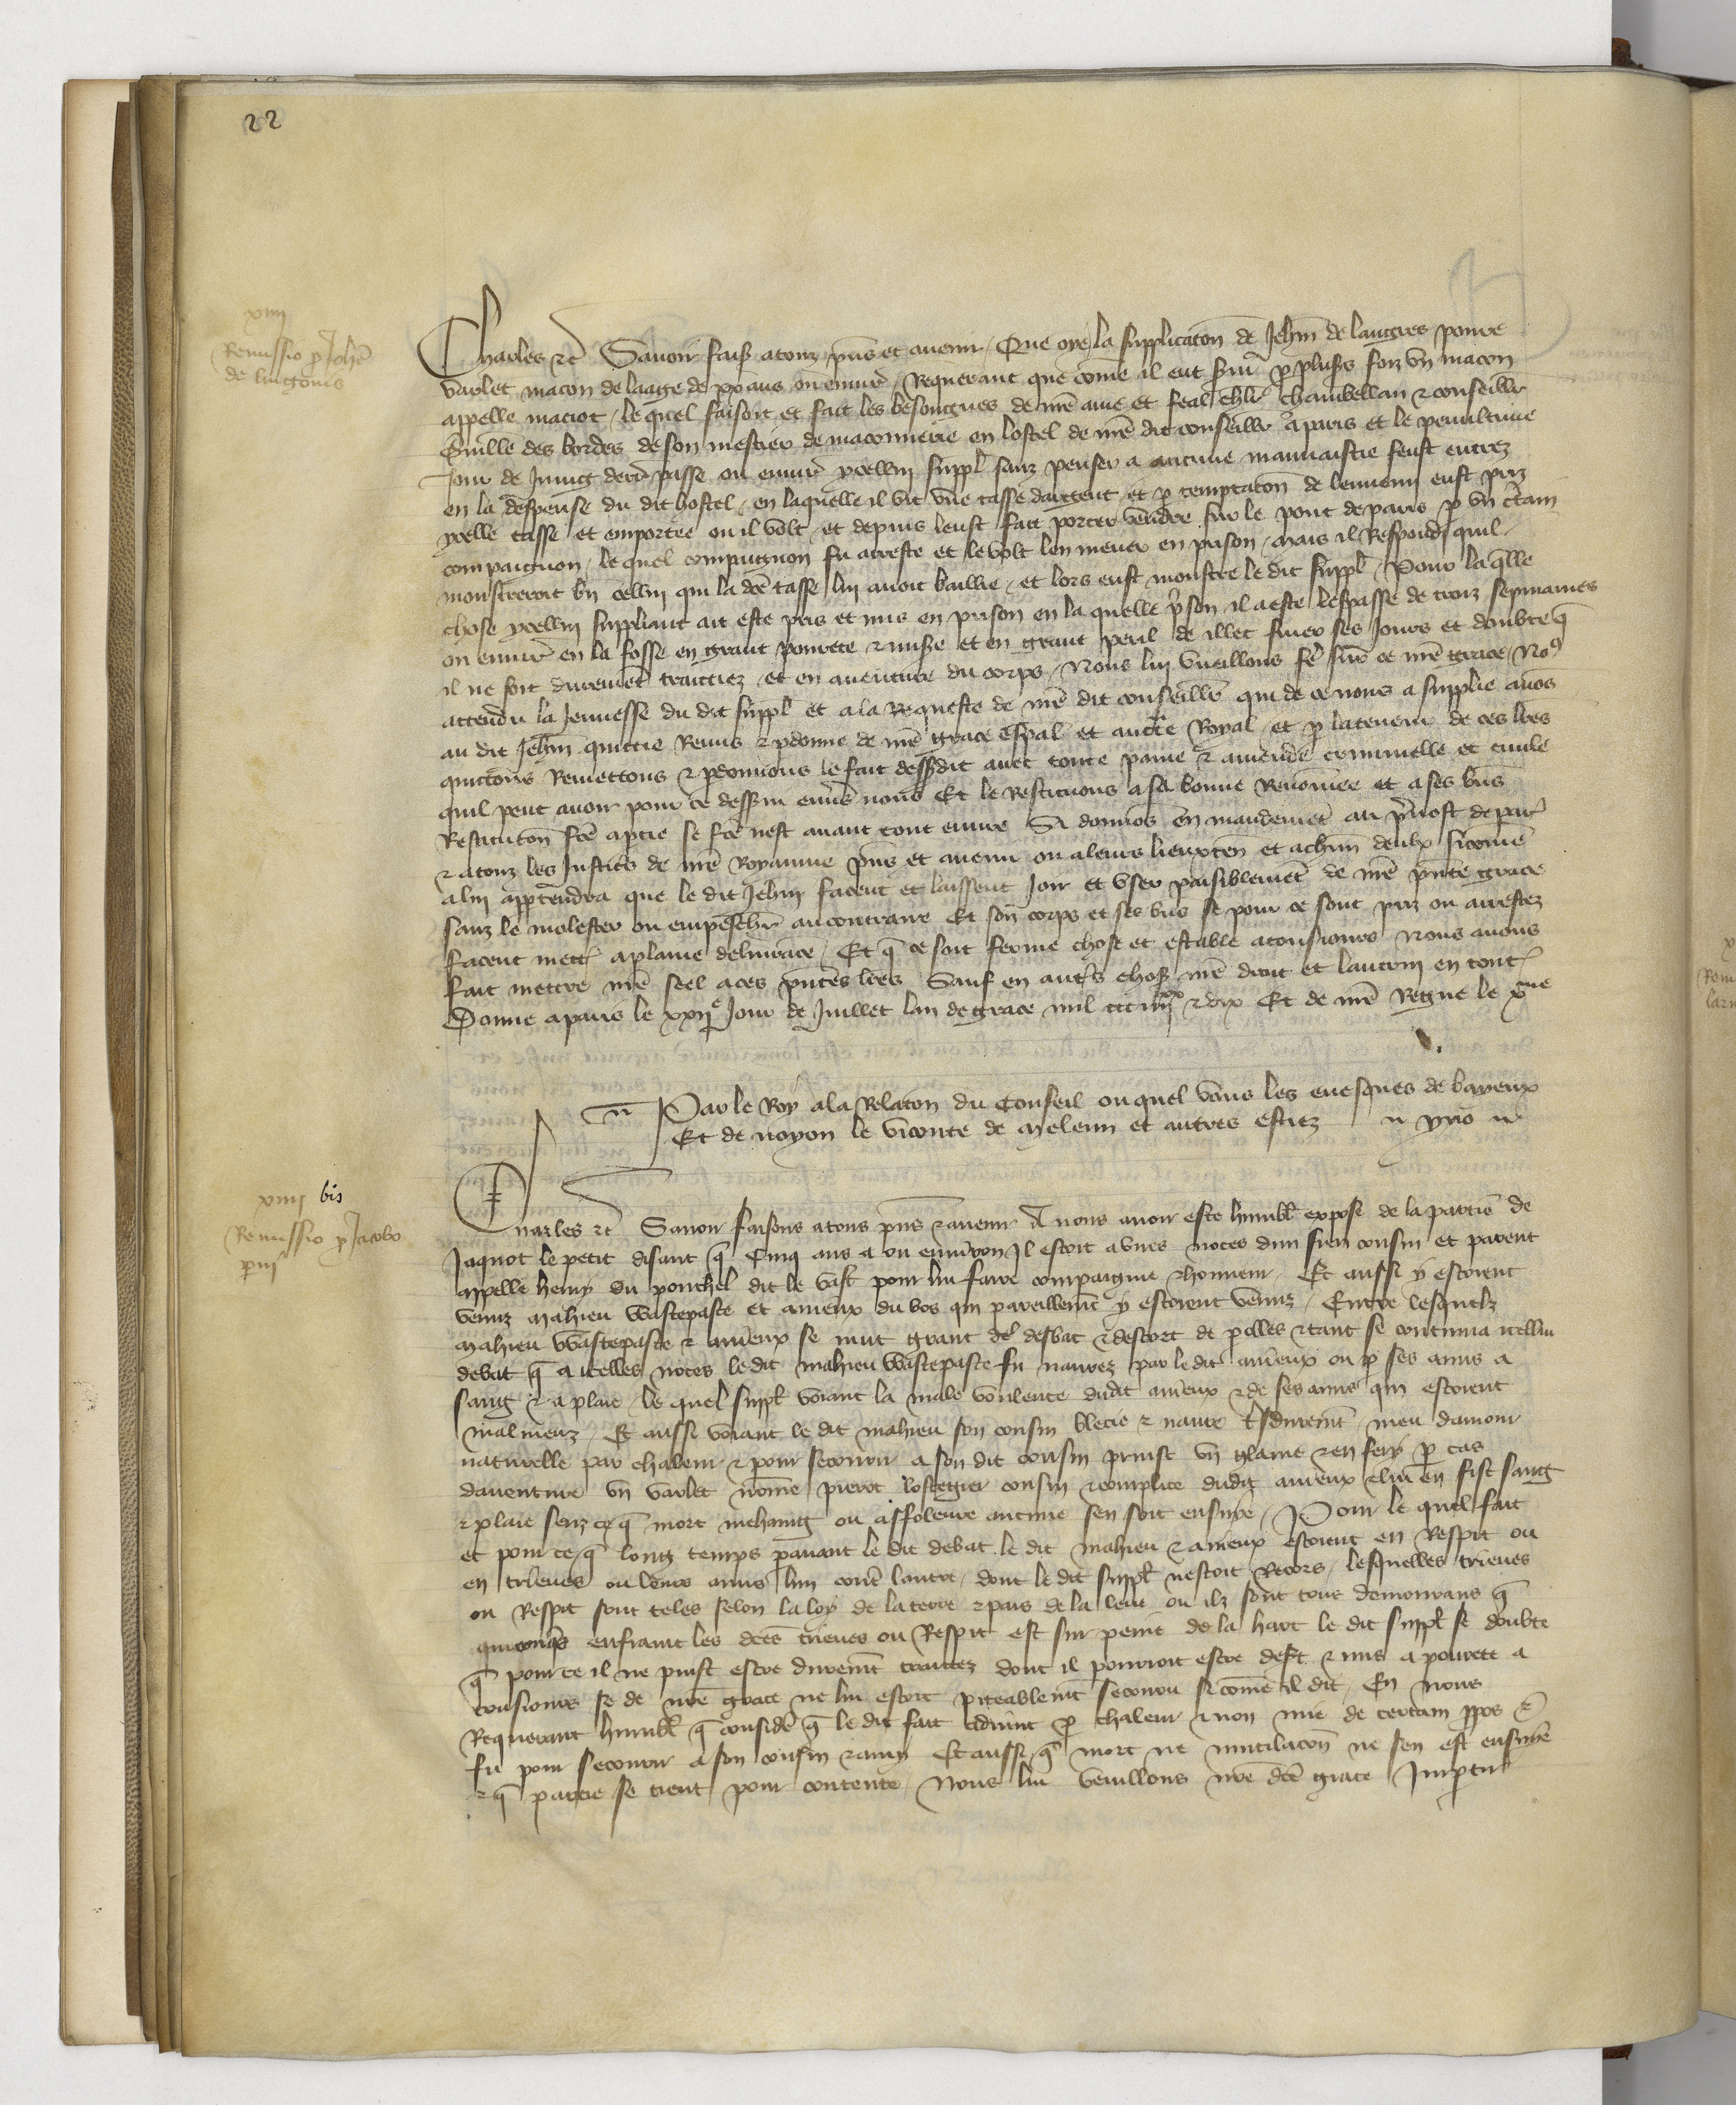 22
xiiii
Remissio p Johe
de lingonis
Charles etc Savoir fais a touz pns et avenir Que oye la supplicacon de Jehin de langres povre
varlet macon de laage de xx ans ou envir requerant que come il eut servi p plusrs foiz un macon
appelle maciot le quel faisoit et fait les besoingnes de nre ame et feal chlr chambellan & conseillr
Guille des bordes de son mestier de maconnerie en lostel de nre dit conseillr a paris et le penultime
Jour de Juing derr passe ou envir ycellui suppl sanz penser a aucune mauvaistie feust entrez
en la despense du dit hostel en laquelle il vit une tasse dargent et p temptacon de lennemi eust priz
ycelle tasse et emportee ou il volt et depuis leust fait porter vendre sur le pont de paris p un ctain
compaignon le quel compaignon fu arreste et le volt len mener en prison mais il respondi quil
monstreroit bn cellui qui la dce tasse lui avoit baillie et lors eust monstre le dit suppl Pour la qlle
chose ycellui suppliant ait este pris et mis en prison en la quelle prison il a este lespasse de troiz sepmaines
ou envir en la fosse en grant povrete & misere et en grant peril de illec finer ses jours et doubte q
il ne soit duremet traittiez et en aventure du corps Nous lui vueillons fe sur ce nre grace Nos
attendu la Jennesse du dit suppl et a la requeste de nre dit conseillr qui de ce nous a supplie avos
au dit Jehin quittie remis & pdonne de nre grace espal et aucte Royal et p la teneur de ces lres
quittons remettons & pdonnons le fait dessdit avec toute paine & amende criminelle et civile
quil peut avoir pour ce dessui envs nous Et le restituons a sa bonne renommee et a ses bns
Restitucon fce a ptie se fce nest avant tout euvre Si donnos en mandemet au pvost de par
& a touz les Justics de nre Royaume pns et avenir ou a leurs lieuxten et a chun deulx si come
a lui apptendra que le dit Jehin facent et laissent Joir et user paisiblemet de nre pnte grace
sanz le molester ou empeschr au contraire Et son corps et ses bns se pour ce sont priz ou arrestez
facent mett a plaine delivrace Et q ce soit ferme chose et estable a tousjours Nous avons
fait mettre nre seel a ces pntes lres Sauf en autrs choses nre droit et lautrui en tout
Donne a paris le xxije Jour de Juillet lan de grace mil ccc iiii xx & dix Et de nre Regne le xme
Par le Roy a la Relacon du Conseil ou quel vous les evesques de bayeux
Et de noyon le viconte de meleun et autres estiez
xiiii bis
Remissio p Jacobo
pvi
Charles etc Savoir faisons a tous pns & avenir A nous avoir este humbl expose de la partie de
Jaquot le petit disant q Cinq ans a ou environ Il estoit a unes noces dun sien cousin et parent
appelle henry du ponchel dit le vast pour lui faire compaignie & honneur Et aussi y estoient
venuz mahieu wastepaste et amieux du bos qui pareillemt y estoient venuz Entre lesquelz
mahieu wastepaste & amieux se mut grant debat & descort de polles & tant se continua icellui
debat q a icelles noces le dit mahieu wastepaste fu navrez par le dit amieux ou p ses amis a
sang & a plaie le quel suppl voiant la male voulente dudit amieux & de ses amis qui estoient
mal meuz Et aussi voiant le dit mahieu son cousin blecie & navre tsduremt meu damour
naturelle par chaleur & pour secourir a son dit cousin prinst un glaive & en fery p cas
daventure un varlet nome pierot lostegier cousin & complice dudit amieux & lui en fist sang
& plaie senz ce q mort mehaing ou affoleure aucune sen soit ensuye Pour le quel fait
et pour ce q long temps pavant le dit debat le dit mahieu & amieux estoient en Respit ou
en trieves ou leurs amis lun cont lautre dont le dit suppl nestoit recors lesquelles trieves
ou Respit sont teles selon la loy de la terre & pais de la leue ou ilz sont tous demourans q
quicoqs enfraint les dces trieves ou Respit est sur peine de la hart le dit suppl se doubte
q pour ce il ne puist estre duremt traittez dont il pourroit estre deft & mis a povrete a
tousjours se de nre grace ne lui estoit piteablemt secouru si come il dit En nous
Requerant humbl q consider q le dit fait advint p chaleur & non mie de certain ppos &
fu pour secourir a son cousin & amy Et aussi q mort ne mutilacon ne sen est ensuye
& q partie se tient pour contente Nous lui veuillons nre dce grace Impartir